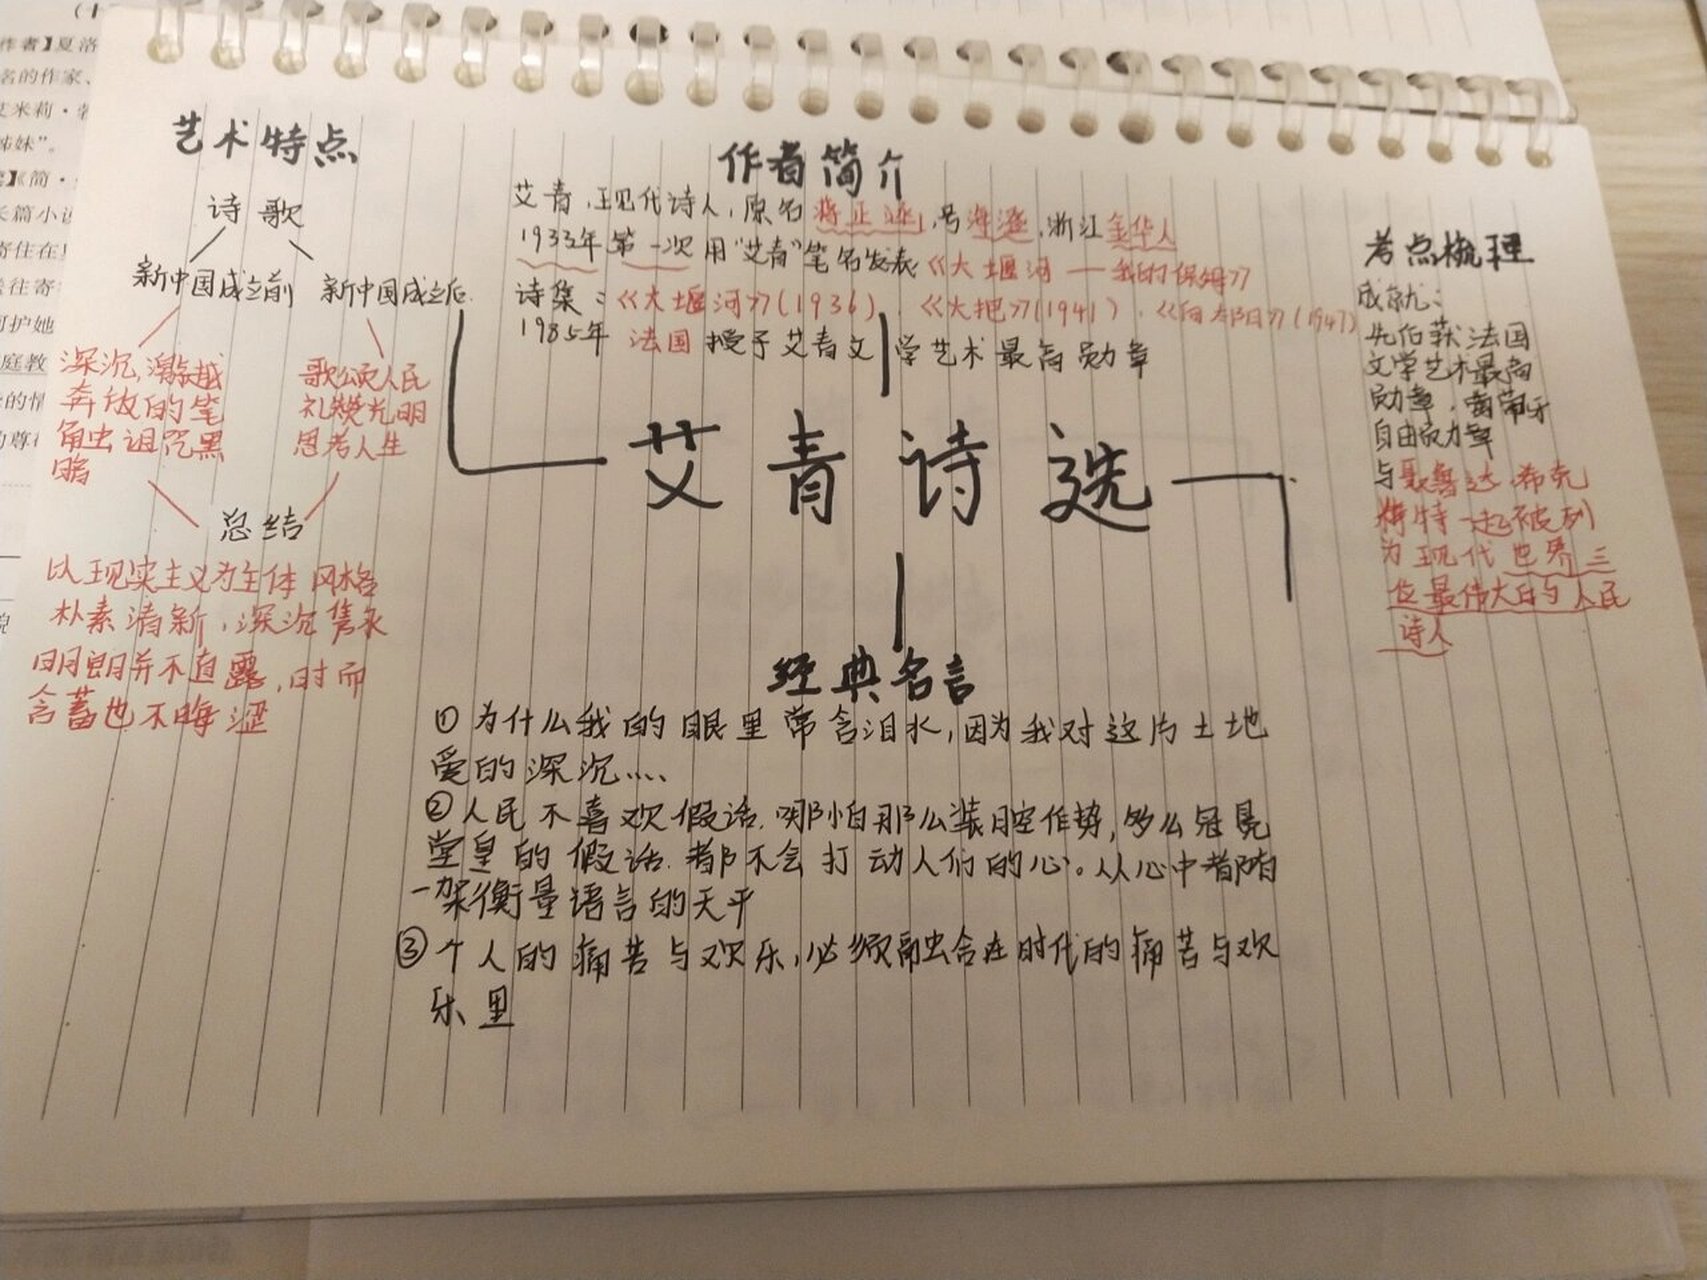 作者】夏洛
名的作家、
艾米莉·
姊妹”。
》《简·
长篇小说
寄住在
往寄
可护她
庭教
的情
艺术特点
诗歌
新中国成立前 新中国成立后
深沉,激越
奔放的笔
触诅咒黑
暗
歌颂人民
礼赞光明
思考人生
总结
以现实主义为主体 风格
朴素清新,深沉隽永
明朗并不直露,时而
含蓄也不晦涩
作者简介
艾青,现代诗人,原名蒋正涵,号海澄,浙江金华人
1933年第一次用“艾青”笔名发表《大堰河——我的保姆》
诗集:《大堰河》(1936)、《火把》(1941)、《向太阳》(1947)
1985年 法国授予艾青文学艺术最高勋章
艾青诗选
考点梳理
成就:
先后获法国
文学艺术最高
勋章,葡萄牙
自由勋章
与聂鲁达 希克
梅特一起被列
为现代世界三
位最伟大的人民
诗人
经典名言
①为什么我的眼里常含泪水,因为我对这片土地
爱的深沉....
②人民不喜欢假话.哪怕那么装腔作势,多么冠冕
堂皇的假话.都不会打动人们的心。人心中都有
一架衡量语言的天平
③个人的痛苦与欢乐,必须融合在时代的痛苦与欢
乐里